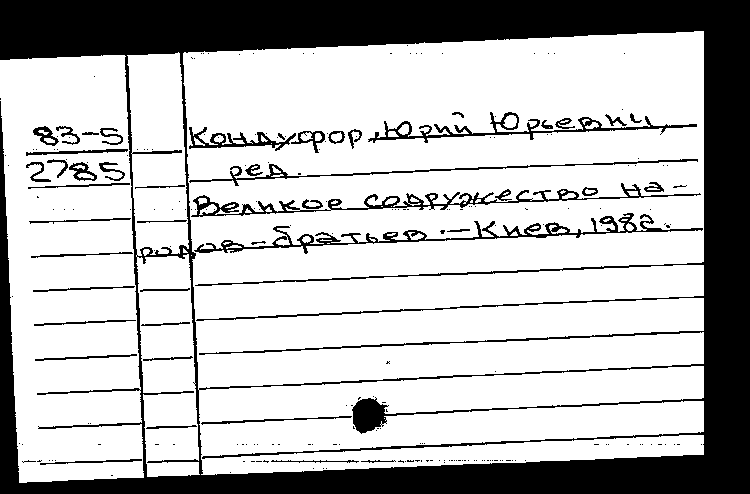 83-5 Кондуфор, Юрий Юрьевич,
2785 ред.
Великое содружество на-
родов-братьев. - Киев, 1982.